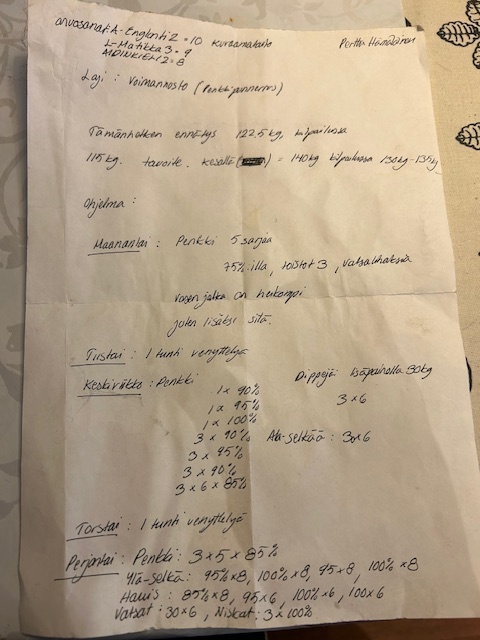 arvosanat: A-Englanti 2 = 10 kurssimaisto
L-Matikka 3 = 9
ÄIDINKIELI 2 = 8
Perttu Hämäläinen
Laji: Voimannosto (Penkkipunnerrus)
Tämänhetken ennätys 122.5kg, kilpailussa
115kg. tavoite. kesälle = 140kg kilpailussa 130kg-135kg
Ohjelma:
Maanantai: Penkki 5 sarjaa
75%:illa, toistot 3, vatsalihaksia
vasen jalka on heikompi
joten lisäksi sitä.
Tiistai: 1 tunti venyttelyä
Keskiviikko: Penkki
1 x 90%
1 x 95%
1 x 100%
3 x 90%
3 x 95%
3 x 90%
3 x 6 x 85%
Dippejä lisäpainolla 30kg
3 x 6
Ala-selkää: 3x6
Torstai: 1 tunti venyttelyä
Perjantai: Penkki: 3 x 5 x 85%
Ylä-selkä: 95% x 8, 100% x 8, 95 x 8, 100% x 8
Hauis: 85% x 8, 95 x 6, 100% x 6, 100 x 6
Vatsat: 30 x 6, Niskat: 3 x 100%